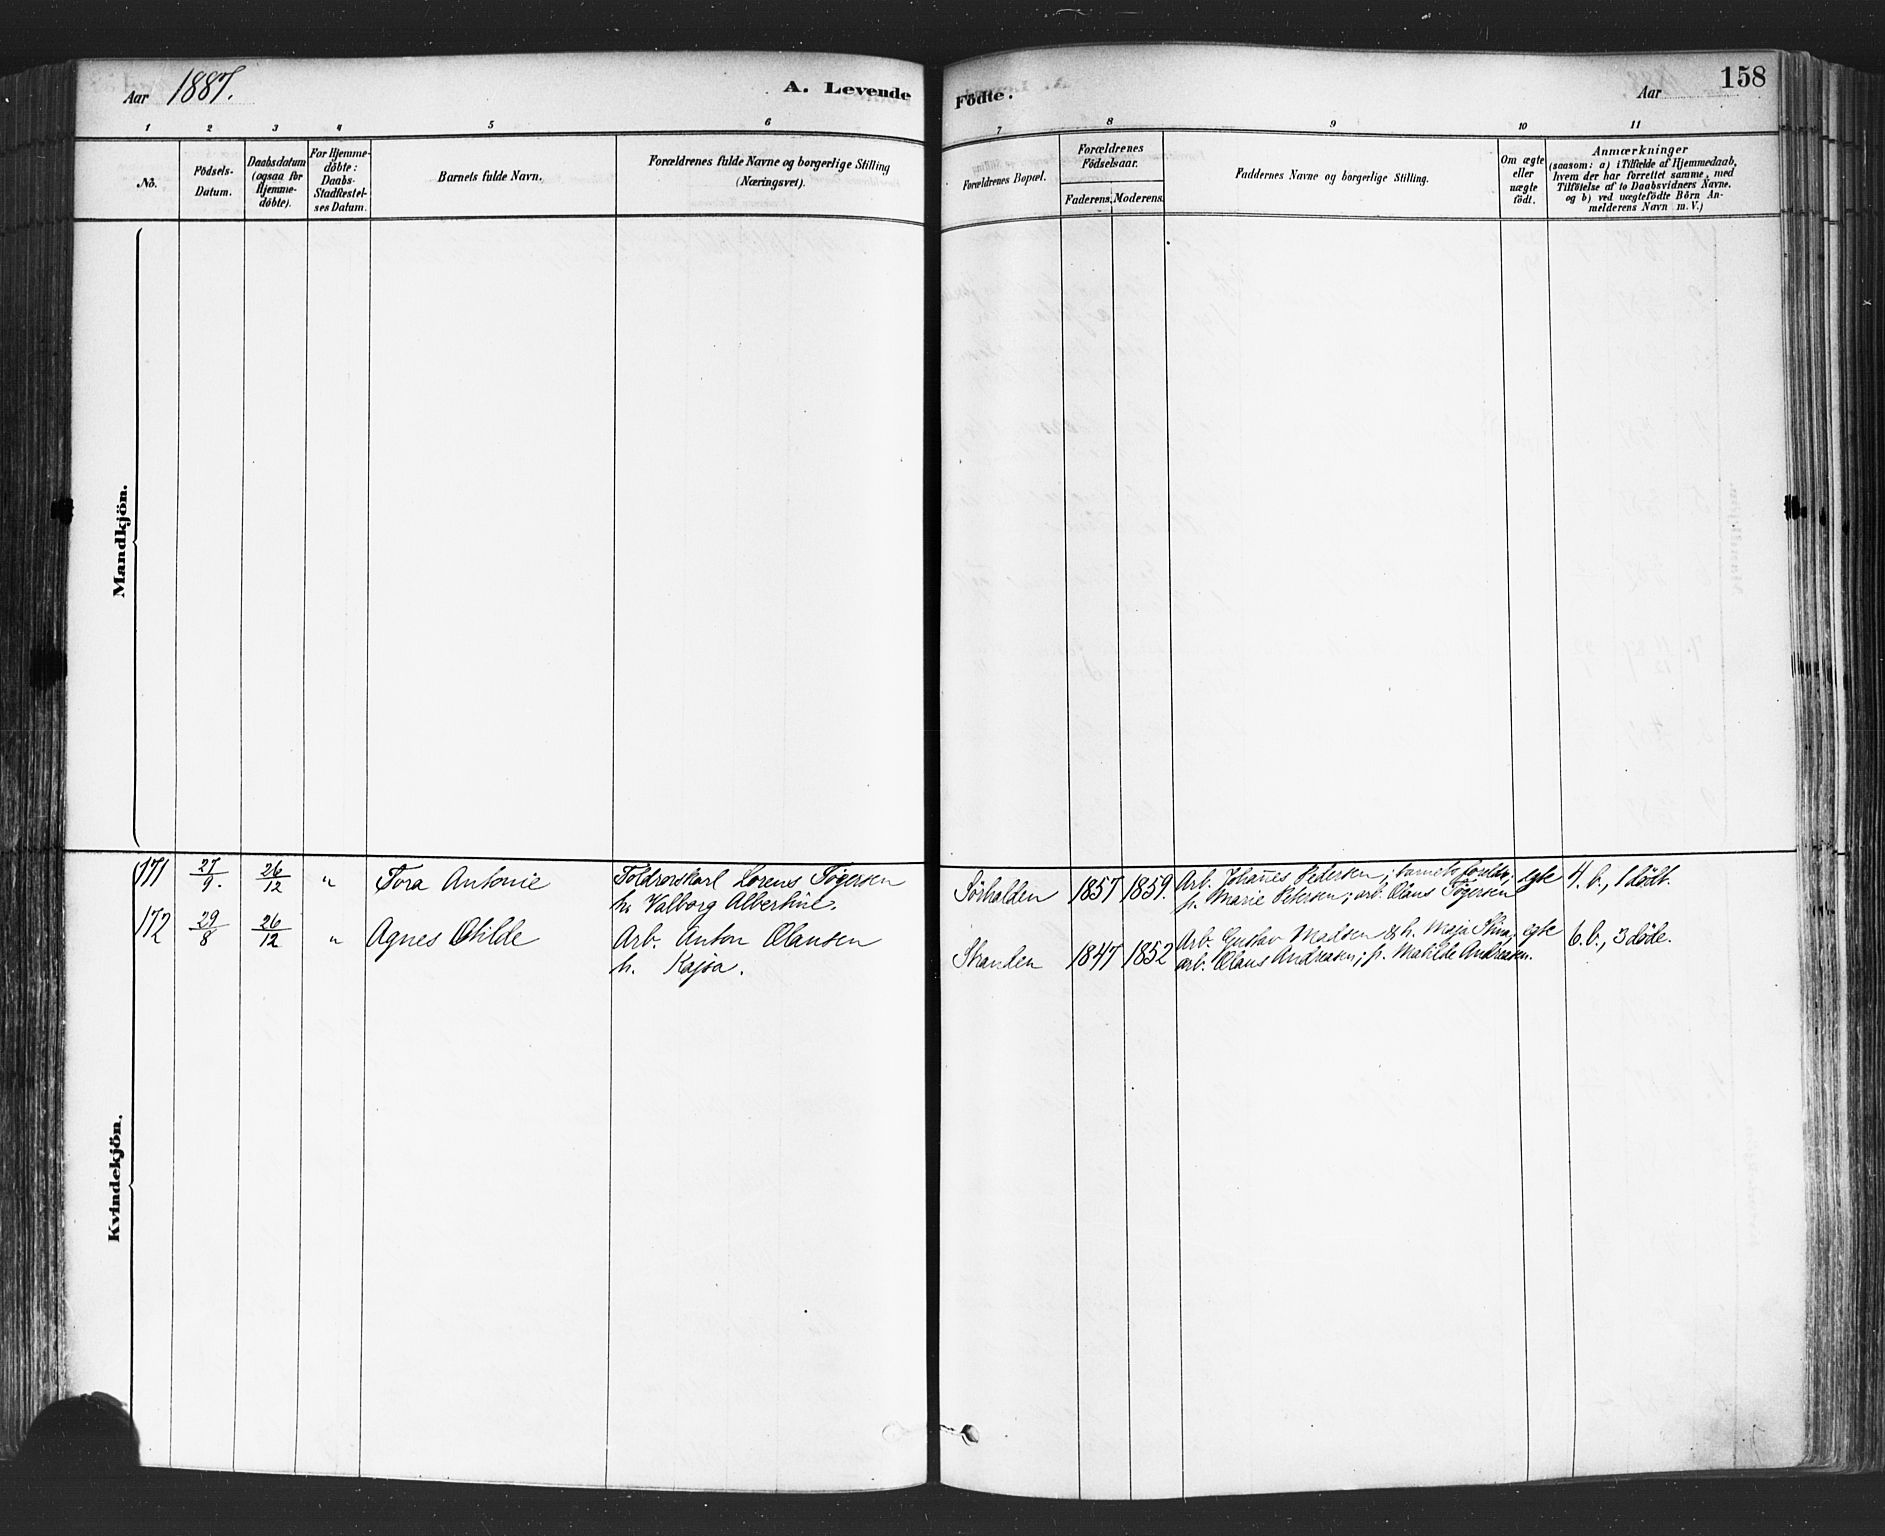 Aar 1887.
A. Levende
Födte.
Aar
158
1 2 3 4 5 6 7 8 9 10 11
No.
Födsels-
Datum.
Daabsdatum
(ogsaa for
Hjemme-
döbte).
For Hjemme-
döbte:
Daabs-
Stadfæstel-
ses Datum.
Barnets fulde Navn.
Forældrenes fulde Navne og borgerlige Stilling
(Næringsvei).
Forældrenes Bopæl.
Forældrenes
Födselsaar.
Faderens. Moderens.
Faddernes Navne og borgerlige Stilling.
Om ægte
eller
uægte
födt.
Anmærkninger
(saasom: a) i Tilfælde af Hjemmedaab,
hvem der har forrettet samme, med
Tilföielse af to Daabsvidners Navne.
og b) ved uægtefödte Börn An-
melderens Navn m. V.)
Mandkjön.
Kvindekjön.
171 27/9. 26/12 " Tora Antonie
Toldrorskarl Lorens Tögersen
h. Valborg Albertine.
Sörhalden 1857 1859.
Arb. Johañes Pedersen; barnets foreldre;
fr. Marie Petersen; arb. Olaus Tögersen
egte 4. b., 1 dödt.
172 29/8 26/12 " Agnes Otilde
Arb. Anton Olausen
h. Kajsa.
Stranden 1847 1852
Arb. Gustav Madsen & h. Maja Stina;
arb. Olaus Andreasen; fr. Matilde Andreasen.
egte 6. b., 3 döde.